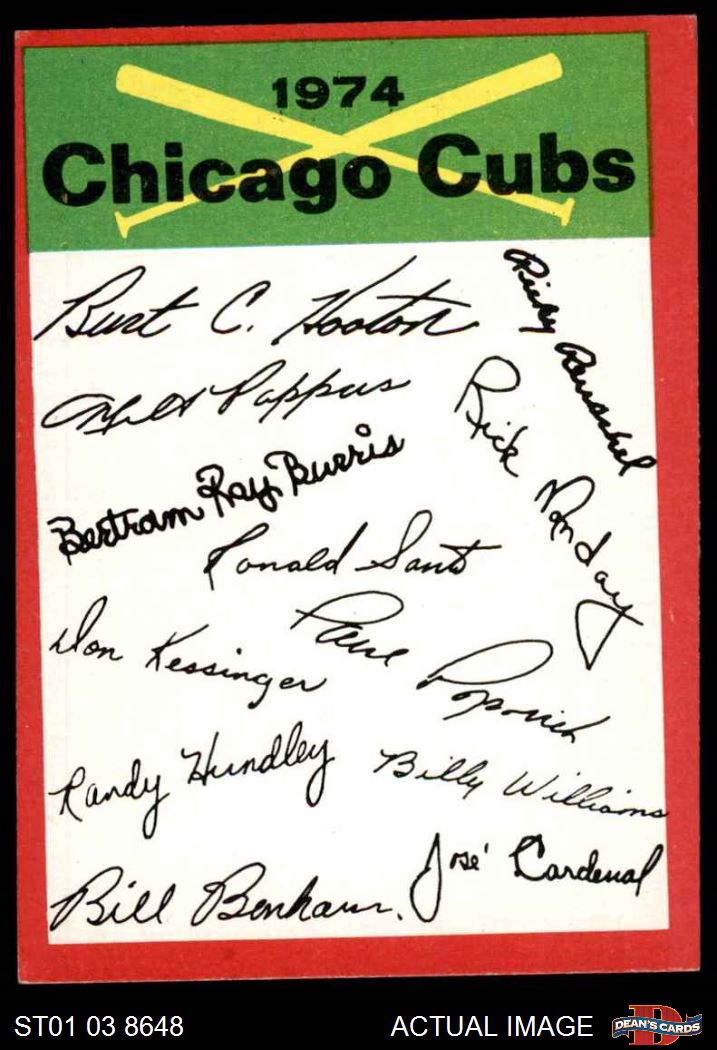 1974
Chicago Cubs
Burt C. Hooton
Ricky Reuschel
Milt Pappas
Rick Monday
Bertram Ray Burris
Ronald Santo
Don Kessinger
Paul Popovich
Randy Hundley
Billy Williams
José Cardenal
Bill Bonham.
ST01 03 8648
ACTUAL IMAGE
DEAN'S CARDS